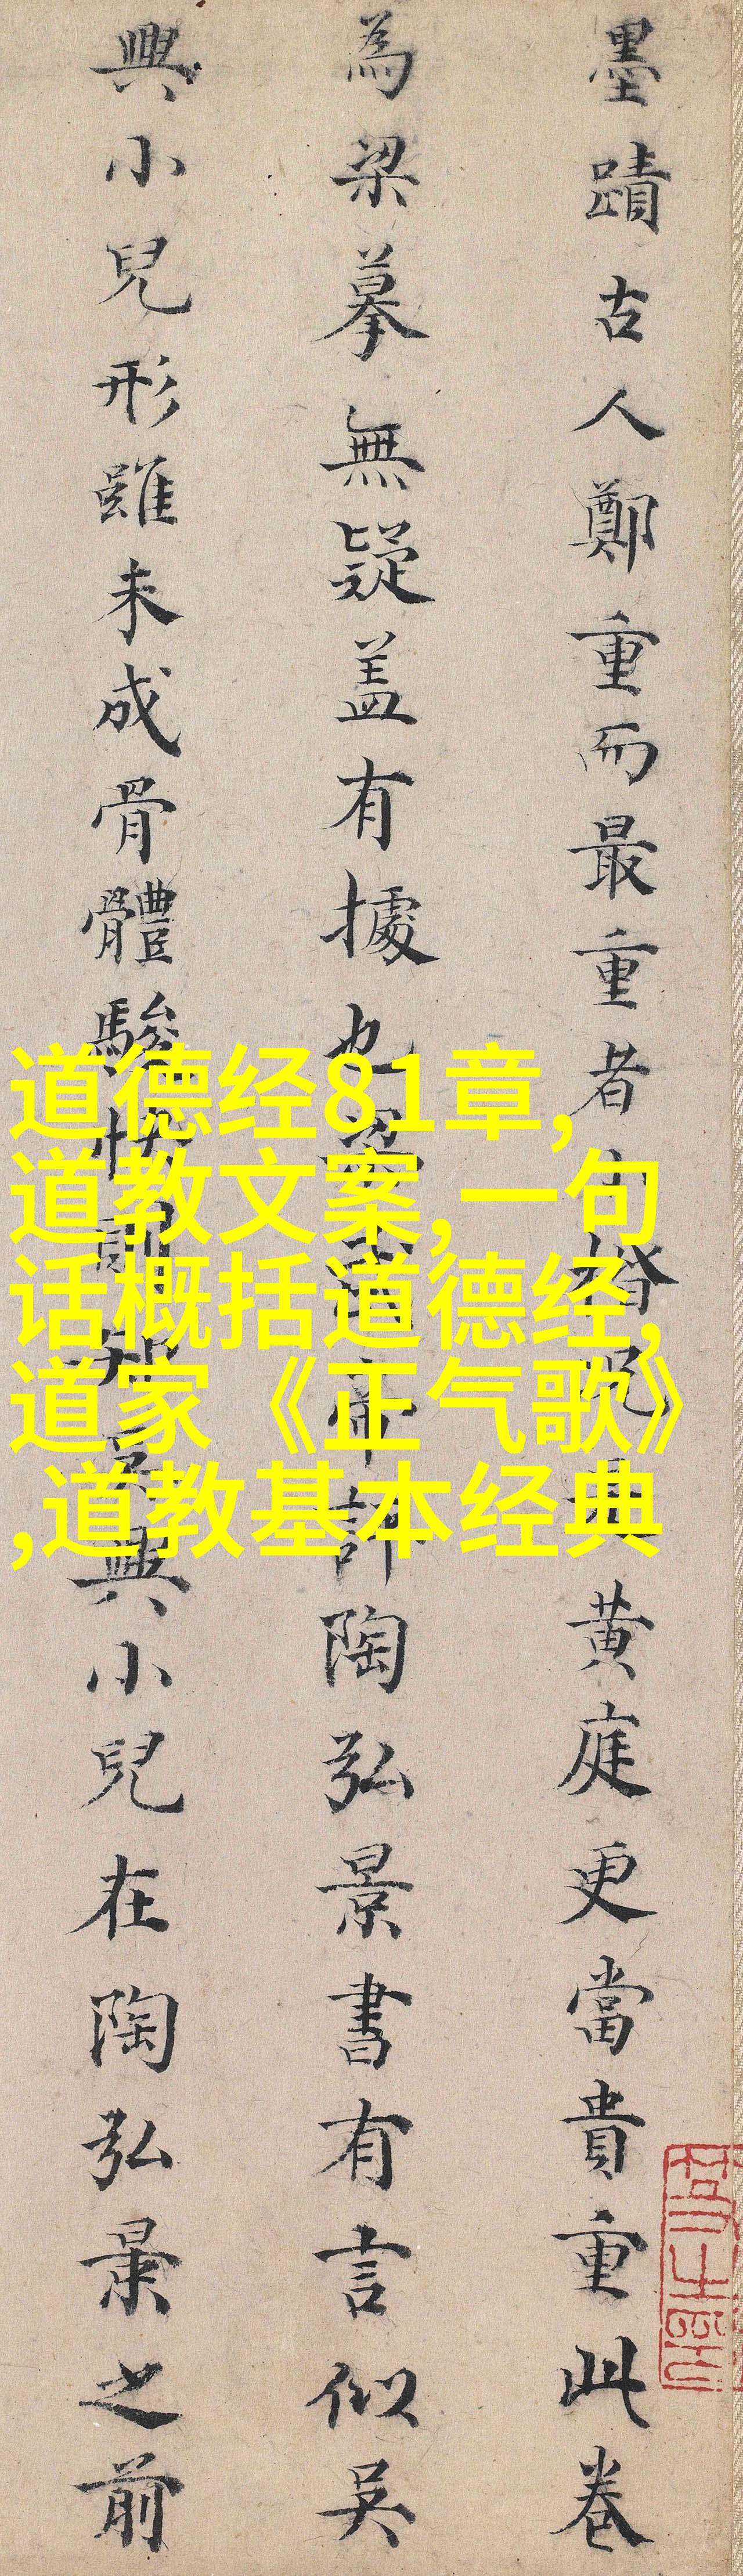 墨蹟古人鄭重而最重者小楷况黄庭更當貴重此卷
為梁摹無疑盖有據也梁武帝評陶弘景書有言似吴
興小兒形雖未成骨體駿快則知吴興小兒在陶弘景之前
道德经81章,
道教文案,一句
话概括道德经,
道家《正气歌》
,道教基本经典